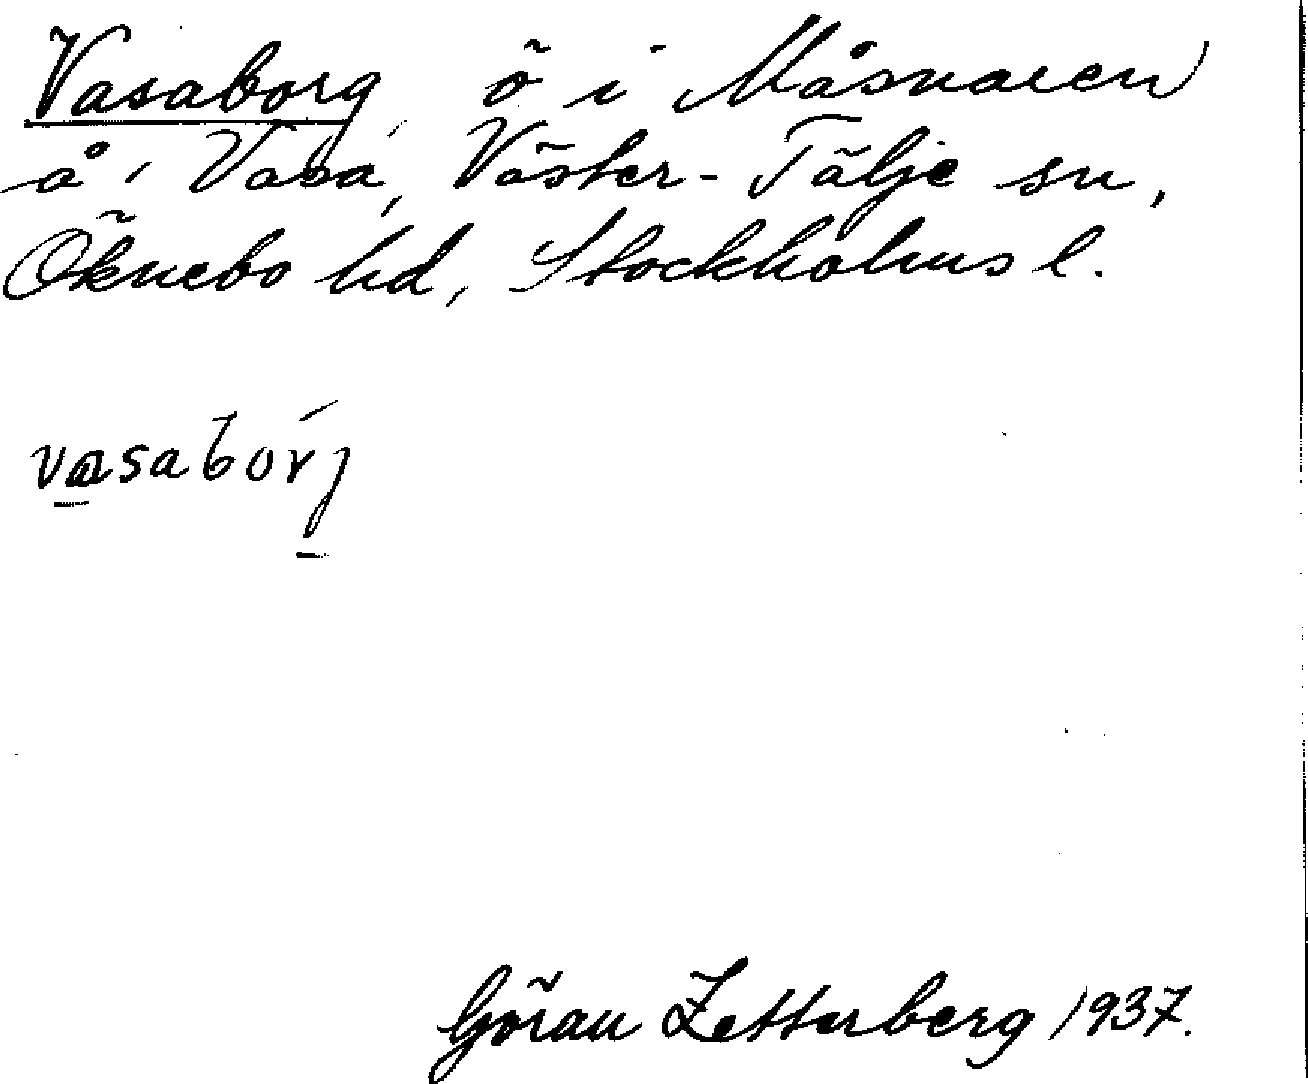 Vasaborg, ö i Måsnaren
å, Vasa, Väster-Tälje sn,
Öknebo hd, Stockholms l.
vasabórj
Göran Zetterberg 1937.